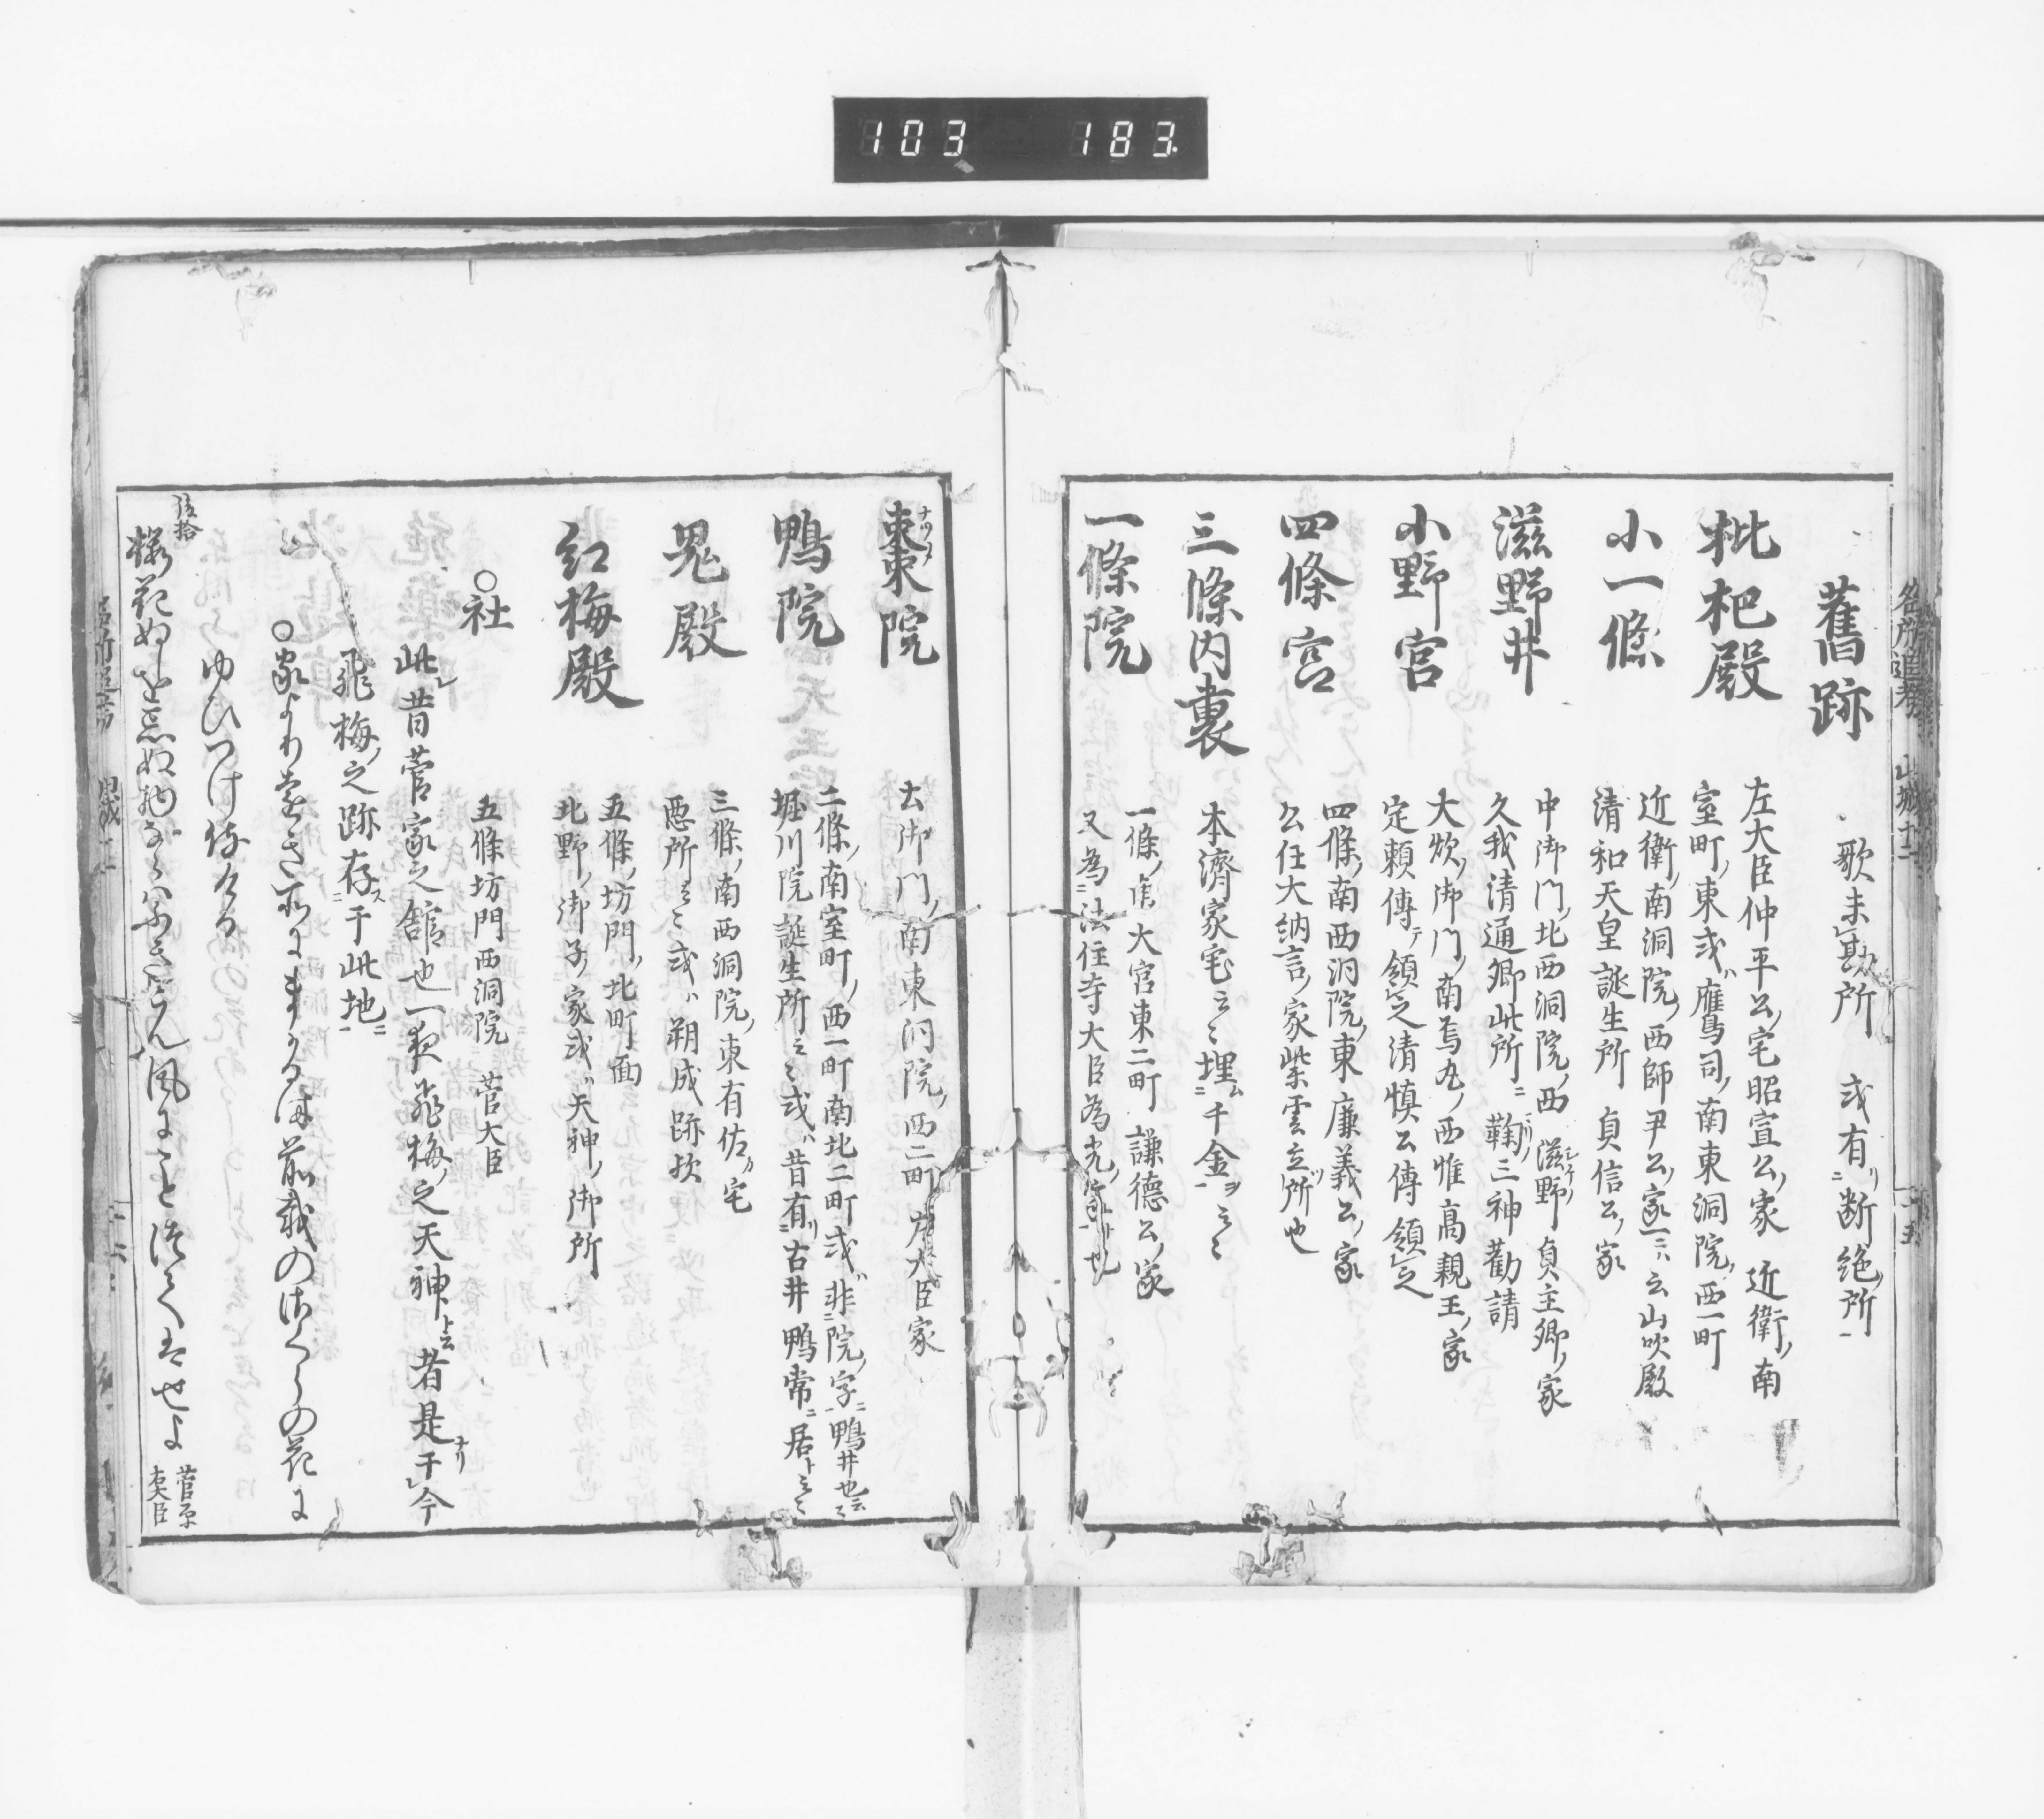 103 183
舊跡 歌未勘所 或有断絶所
枇杷殿 左大臣仲平公宅昭宣公家 近衛南
室町東或鷹司南東洞院西一町
小一條 近衛南洞院西師尹公家一ニハ云山吹殿
清和天皇誕生所 貞信公家
滋野井 中御門北西洞院西 滋野貞主卿家
久我清通卿此所ニ鞠ノ三神勧請
小野宮 大炊御門南烏丸西惟高親王家
定頼傳テ領之清慎公傳領之
四條宮 四條南西洞院東廉義公家
公任大納言家紫雲立所也
三條内裏 本濟家宅云々埋ム千金ヲ云々
一條院 一條南大宮東二町 謙徳公家
又為法住寺大臣為光家也
東東院 土御門南東洞院西二町
鴨院 二條南室町西一町南北二町或非院字鴨井也云々
堀川院誕生所云々或ハ昔有リ古井鴨常ニ居ト云々
鬼殿 三條南西洞院東有佐カ宅
悪所云々或ハ朔成跡歟
紅梅殿 五條坊門北町面
北野御子家或ハ天神御所
○社 五條坊門西洞院 菅大臣
此レ昔菅家之舘也一夜飛梅之天神ト云者是ナリ于今
飛梅之跡存ス于此地ニ
○家より遠き所にまかる时前栽のさくらの花に
ゆひつけ侍ける
後拾
櫻花ぬしを忘ぬ物ならハふきこらん風にことつてはせよ 菅原
太臣
名所追考 山城十二